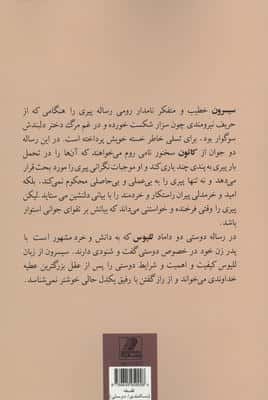 سیسرون خطیب و متفکر نامدار رومی رساله پیری را هنگامی که از
حریف نیرومندی چون سزار شکست خورده و در غم مرگ دختر دلبندش
سوگوار بود. برای تسلی خاطر خسته خویش پرداخته است. در این رساله
دو جوان از کاتون سخنور نامی روم می‌خواهند که آن‌ها را در تحمل
بار پیری به پندی چند یاری کند و او موجبات نگرانی پیری را مورد بحث قرار
می‌دهد و نه تنها پیری را به بی‌عملی و بی‌حاصلی محکوم نمی‌کند. بلکه
امید و خرمدلی پیران راستکار و خردمند را با بیانی دلنشین می ستاید.لیکن
پیری را وقتی فرخنده و خواستنی می‌داند که بنیانش بر تقوای جوانی استوار
باشد.
در رساله دوستی دو داماد للیوس که به دانش و خرد مشهور است با
پدر زن خود در خصوص دوستی گفت و شنودی دارند. سیسرون از زبان
للیوس کیفیت و اهمیت و شرایط دوستی را پس از عقل بزرگترین عطیه
خداوندی می‌خواند و از راز گفتن با رفیق یکدل حالی خوشتر نمی‌شناسد.
فلسفه